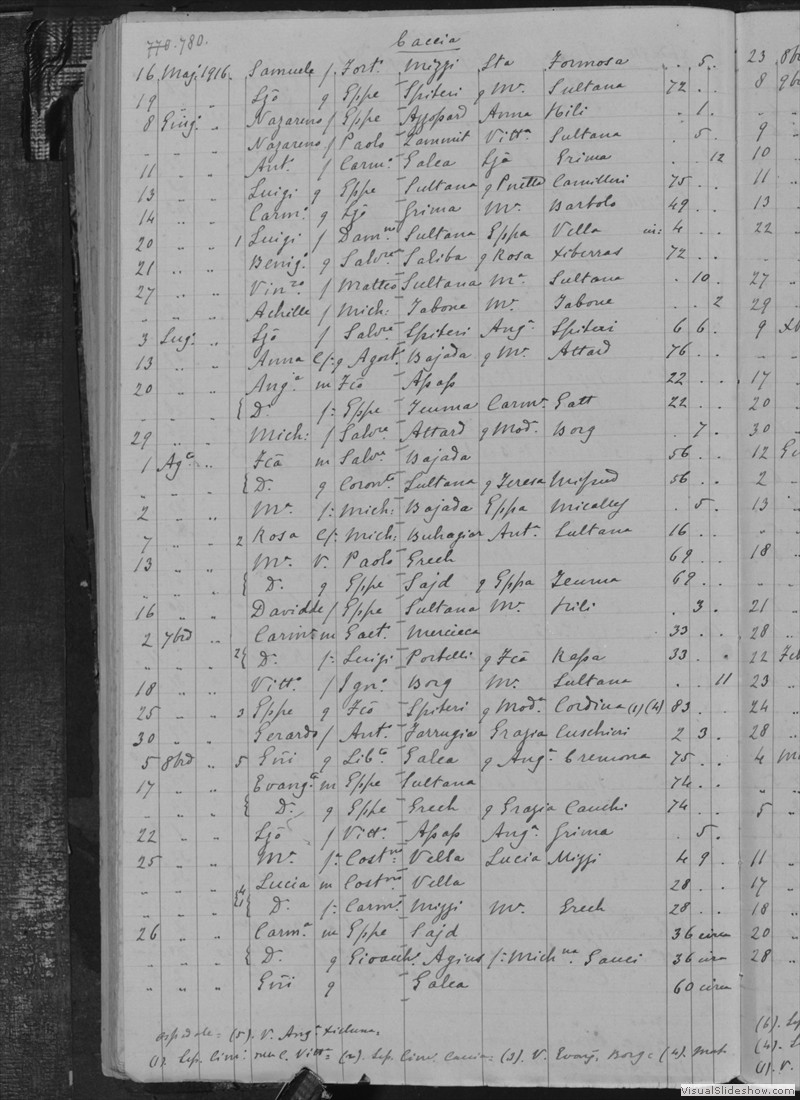 778. 780.
Caccia
16 Maj. 1916. Samuele f Fort. Mizzi Sta Formosa . 5 .
19 " " Ljo q Eppe Spiteri q Mª. Sultana 72 . .
8 Giugº " Nazareno f Eppe Azzopard Anna Hili . 1 .
" " " Nazareno f Paolo Zammit Vittª Sultana . 5 .
11 " " Ant. f Carmº Galea Ljo Grima . . 12
13 " " Luigi q Eppe Sultana q Camilleri 75 . .
14 " " Carmª q Ljo Grima Mª. Bartolo 49 . .
20 " " 1 Luigi f Damno Sultana Eppa Vella in: 4 . .
21 " " Benigª q Salvre Saliba q Rosa Xiberras 72 . .
27 " " Vinzo f Matteo Sultana Mª Sultana . 10 .
" " " Achille f Mich: Tabone Mª. Tabone . . 2
3 Lugº " Ljo f Salvre Spiteri Angª Spiteri 6 6 .
13 " " Anna C/: q Agostº Bajada q Mª. Attard 76 . .
20 " " Angª m Fco Apap 22 . .
" " " { Dª. f: Eppe Zemma Carmª Gatt 22 . .
29 " " Mich: f Salvre Attard q Modª Borg . 7 .
1 Agº " Fca m Salvre Bajada 56 . .
" " " { Dª. q Coronto Sultana q Teresa Mifsud 56 . .
2 " " Mª. f: Mich: Bajada Eppa Micallef . 5 .
7 " " 2 Rosa C/: Mich: Buhagiar Antª Sultana 16 . .
13 " " Mª. V. Paolo Grech 69 . .
" " " { Dª. q Eppe Sajd q Eppa Zemma 69 . .
16 " " Davidde f Eppe Sultana Mª. Hili . 3 .
2 7brd " Carmª m Gaetº Mercieca 33 . .
" " " 2{ Dª. f: Luigi Portelli q Fca Rapa 33 . .
18 " " Vittº f Ignº Borg Mª. Sultana . . 11
25 " " 3 Eppe q Fco Spiteri q Modª Cordina (1) (4) 83 . .
30 " " Gerardo f Antº Farrugia Grazia Cuschieri 2 3 .
5 8brd " 5 Gñi q Libto Galea q Angª Cremona 75 . .
17 " " Evangta m Eppe Sultana 74 . .
" " " { Dª. q Eppe Grech q Grazia Cauchi 74 . .
22 " " Ljo f Vittº Apap Angª Grima . 5 .
25 " " Mª. f: Costno Vella Lucia Mizzi 4 9 .
" " " Lucia m Costno Vella 28 . .
" " " { Dª. f: Carmº Mizzi Mª. Grech 28 . .
26 " " Carmª m Eppe Sajd 36 circa
" " " { Dª. q Gioachº Agius f: Michna Gauci 36 circa
" " " Gñi q Galea 60 circa
ospedale = (5). V. Angª Xicluna =
(1). Sep. Cimº. Vittª = (2). Sep. Cimº. Caccia = (3). V. Evang. Borg = (4). Mat
23 8b
8 9b
9
10
11
13
22
27
29
9 Xb
17
20
30
12
2
13
18
21
28
22 Feb
23
24
28
4 M
5
11
17
18
20
28
(6). Sep
(4). S
(1). V.
VisualSlideshow.com